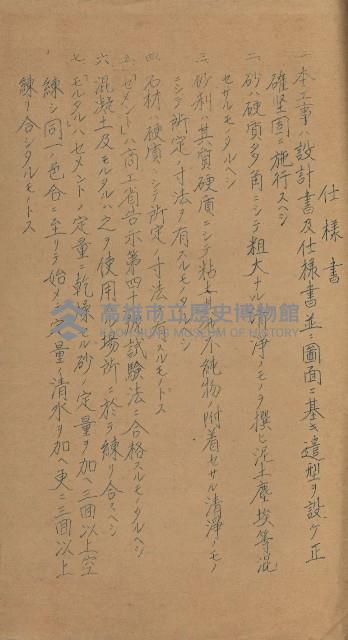 仕様書
一 本工事ハ設計書及仕様書並ニ圖面ニ基キ遣型ヲ設ケ正
確堅固ニ施行スベシ
二 砂ハ硬質多角ニシテ粗大ナル清浄ノモノヲ撰ヒ泥土塵埃等混
セサルモノタルヘシ
三 砂利ハ其質硬質ニシテ粘土 不純物ノ附着セサル清浄ノモノ
ニシテ所定ノ寸法ヲ有スルモノ
四 石材ハ硬質ニシテ所定ノ寸法 スルモノトス
五 「セメント」ハ商工省告示第四十 試験法ニ合格スルモノタルヘシ
六 混凝土及モルタルハ之ヲ使用 場所ニ於テ練リ合スヘシ
七 「モルタル」ハセメントノ定量ニ乾燥 ル砂ノ定量ヲ加ヘ三回以上空
練シ同一ノ色合ニ至リテ始メテ定量ノ清水ヲ加ヘ更ニ三回以上
練リ合シタルモノトス
高雄市立歷史博物館